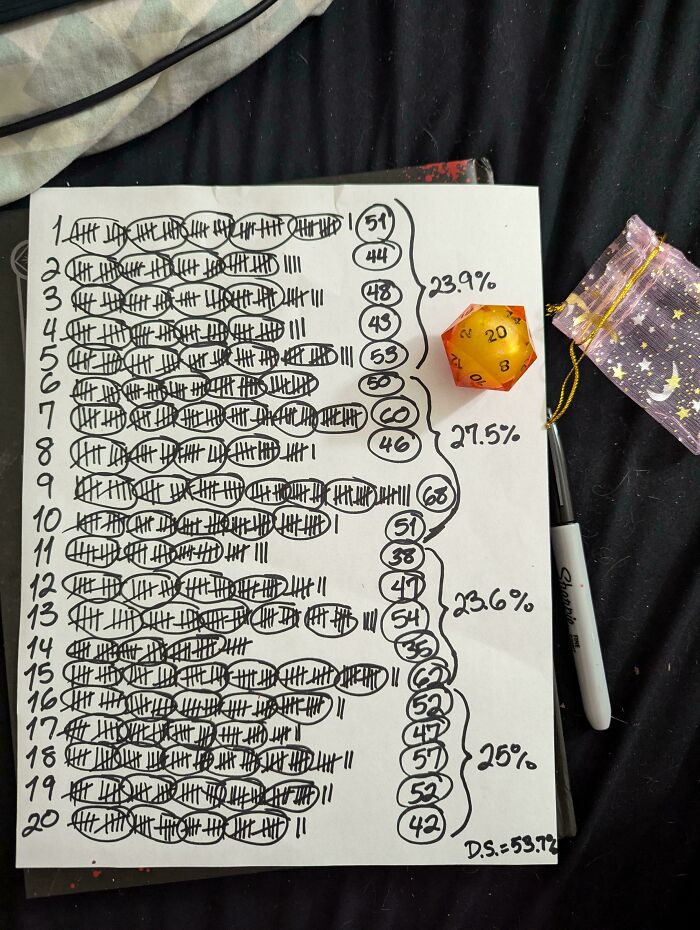 1 51
2 44
3 48
23.9%
4 43
5 53
6 50
7 60
27.5%
8 46
9 68
10 51
11 38
12 47
23.6%
13 54
14 35
15 62
16 52
17 47
25%
18 57
19 52
20 42
D.S.=53.7%
20
8
Sharpie